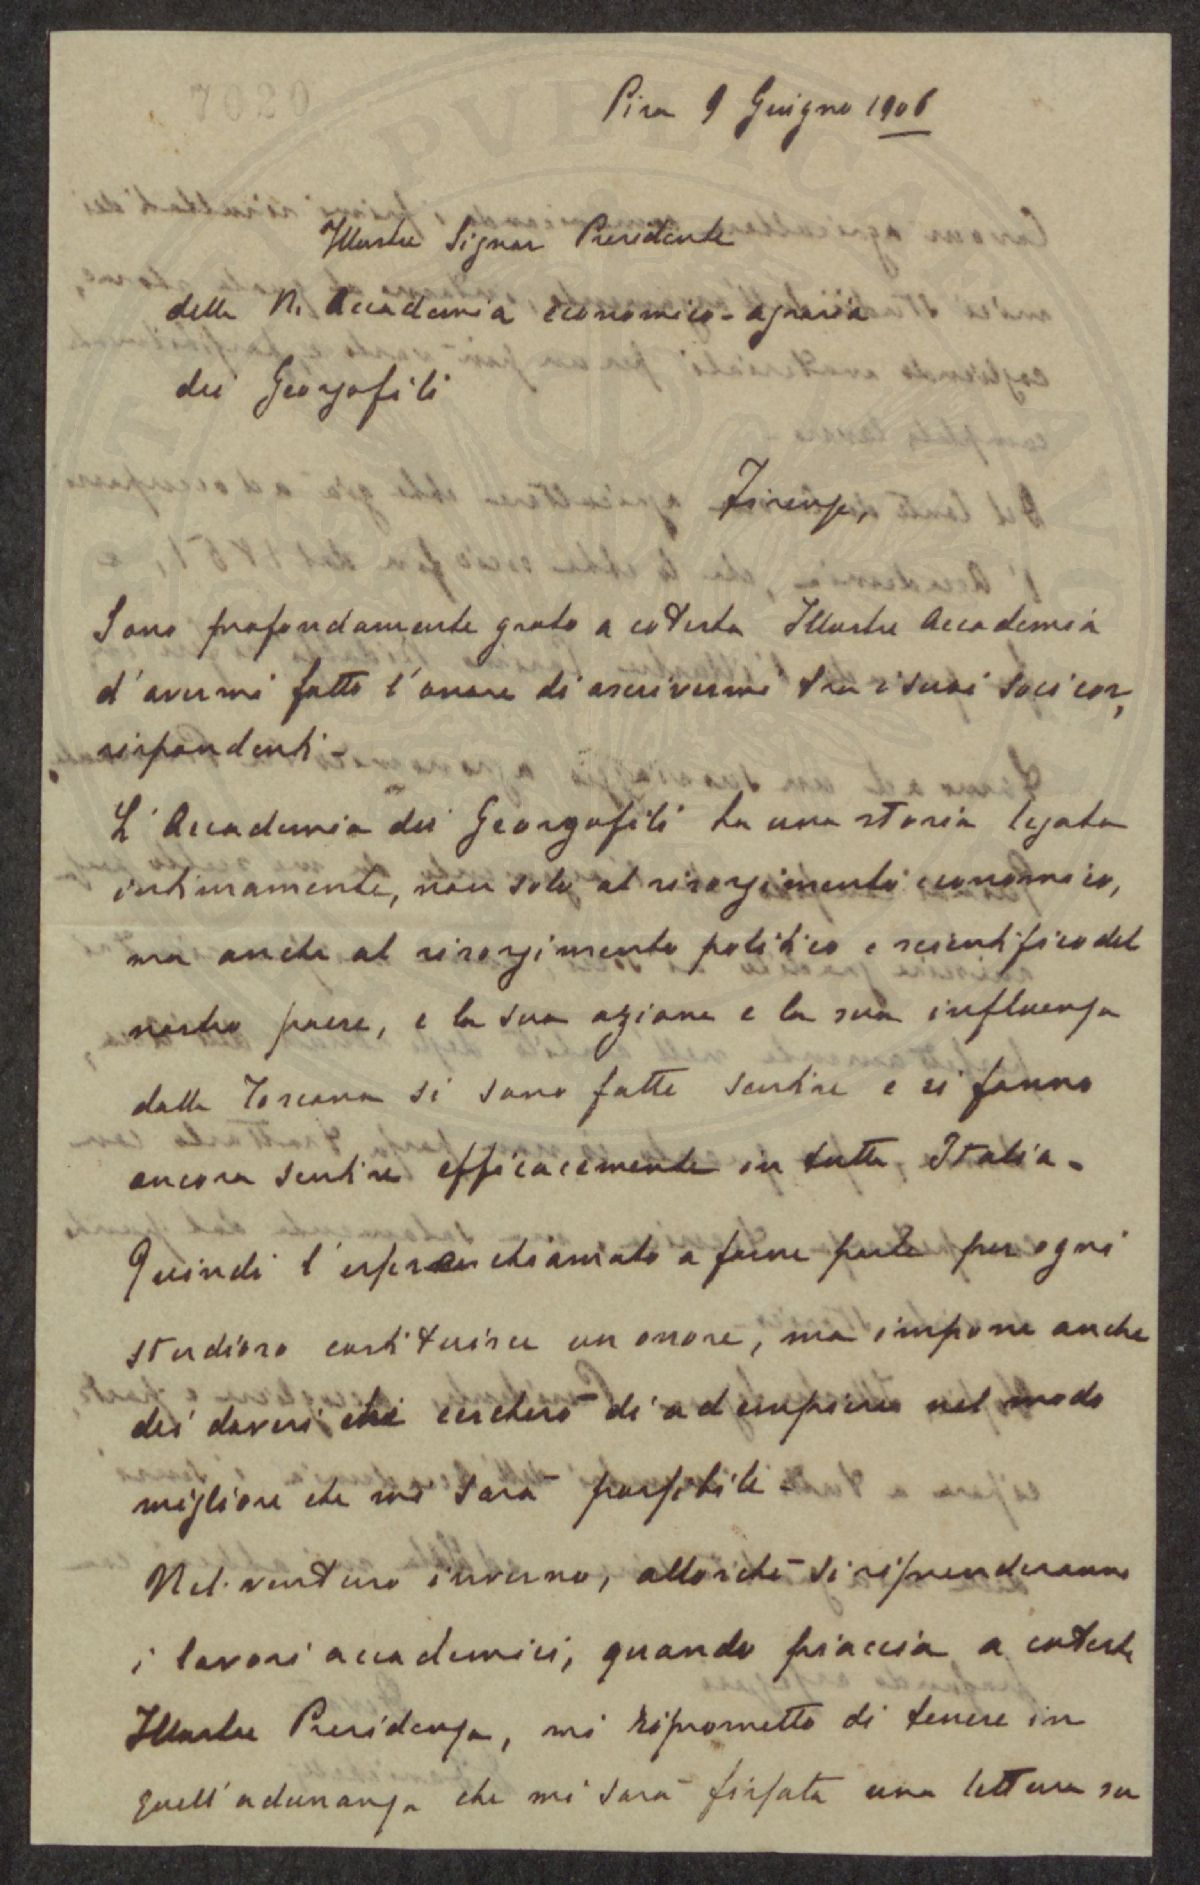 7020
Pisa 9 Giugno 1906
Illustre Signor Presidente
della R. Accademia economico-agraria
dei Georgofili
Firenze,
Sono profondamente grato a cotesta Illustre Accademia
d'avermi fatto l'onore di ascrivermi tra i suoi soci cor,
rispondenti -
L'Accademia dei Georgofili ha una storia legata
intimamente, non solo al risorgimento economico,
ma anche al risorgimento politico e scientifico del
nostro paese, e la sua azione e la sua influenza
dalla Toscana si sono fatte sentire e si fanno
ancora sentire efficacemente in tutta Italia -
Quindi l'esser chiamato a farne parte per ogni
studioso costituisce un onore, ma impone anche
dei doveri che cercherò di adempiere nel modo
migliore che mi sarà possibile -
Nel venturo inverno, allorchè si riprenderanno
i lavori accademici, quando piaccia a cotesta
Illustre Presidenza, mi riprometto di tenere in
quell'adunanza che mi sarà fissata una lettura su